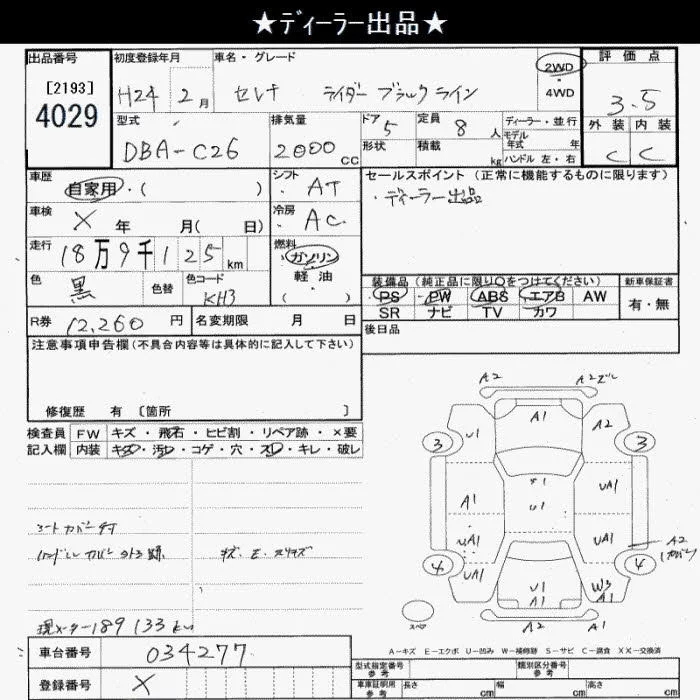 ★ディーラー出品★
出品番号
[2193]
4029
初度登録年月
H24年2月
車名・グレード
セレナ ライダー ブラックライン
2WD
・
4WD
評価点
3.5
外装 内装
C C
型式
DBA-C26
排気量
2000 cc
ドア 5
形状
定員 8 人
積載 kg
ディーラー・並行
モデル
年式 年
ハンドル 左・右
車歴
自家用・( )
シフト
AT
セールスポイント(正常に機能するものに限ります)
・ディーラー出品
車検
X 年 月( 日)
冷房
AC
走行
18万9千125km
燃料
ガソリン
軽油
( )
色
黒
色替
色コード
KH3
装備品(純正品に限り○をつけてください)
PS PW ABS エアB AW
SR ナビ TV カワ
新車保証書
有・無
R券 12,260 円
名変期限 月 日
後日品
注意事項申告欄(不具合内容等は具体的に記入して下さい)
修復歴 有 [箇所 ]
検査員 FW キズ・飛石・ヒビ割・リペア跡・×要
記入欄 内装 キズ・汚レ・コゲ・穴・スレ・キレ・破レ
シートカバー付
キズ、E、スリキズ
現メーター189133km
車台番号 034277
登録番号 X
A2 A2
A1
U1 A2
3 3
A1 U1 UA1
UA1 UA1 A2
4 4
UA1 U1 W3
A1 A1
スペア
A2 A1
A-キズ E-エクボ U-凹み W-補修跡 S-サビ C-腐食 XX-交換済
型式指定番号
参考
類別区分番号
参考
車庫証明用
参考
長さ cm 幅 cm 高さ cm